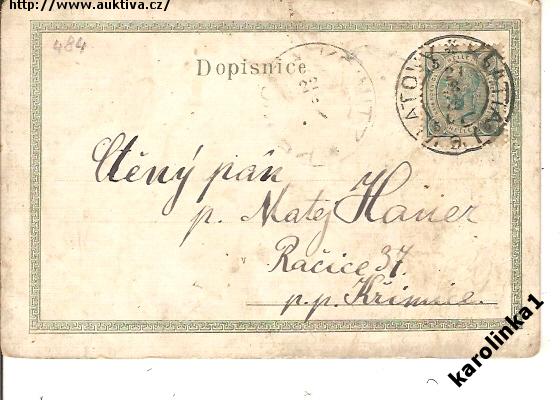 http://www.auktiva.cz/
484
Dopisnice
KLATOVY KLATTAU
21
Ctěný pán
p. Matej Haner
Račice 37.
p.p. Křimice.
karolinka1